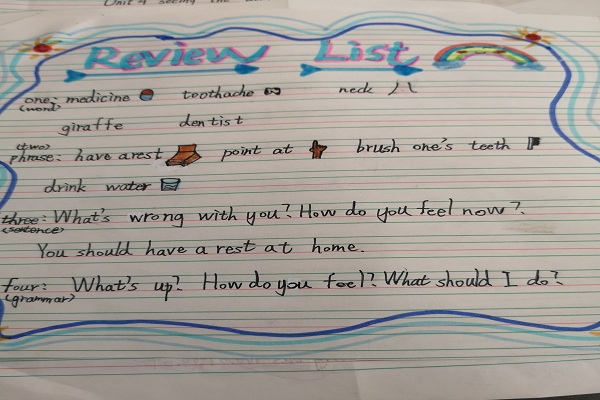 Unit 4 seeing the
Review List
one: medicine toothache neck
(word)
giraffe dentist
(two)
phrase: have arest point at brush one's teeth
drink water
three: What's wrong with you? How do you feel now?
(sentence)
You should have a rest at home.
four: What's up? How do you feel? What should I do?
(grammar)